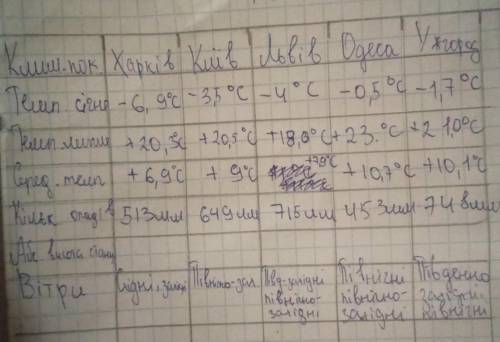 Клим. пок. Харків Київ Львів Одеса Ужгород
Темп. січня -6,9°C -3,5°C -4°C -0,5°C -1,7°C
Темп. липня +20,3°C +20,5°C +18,0°C +23.°C +21,0°C
Серед. темп +6,9°C +9°C +7,9°C +10,7°C +10,1°C
Кільк опадів 513мм 649мм 715мм 453мм 748мм
Абс висота
Вітри західні Північно-зах. Пвд-західні Північні Південно
північно- північно- західні,
західні західні північні